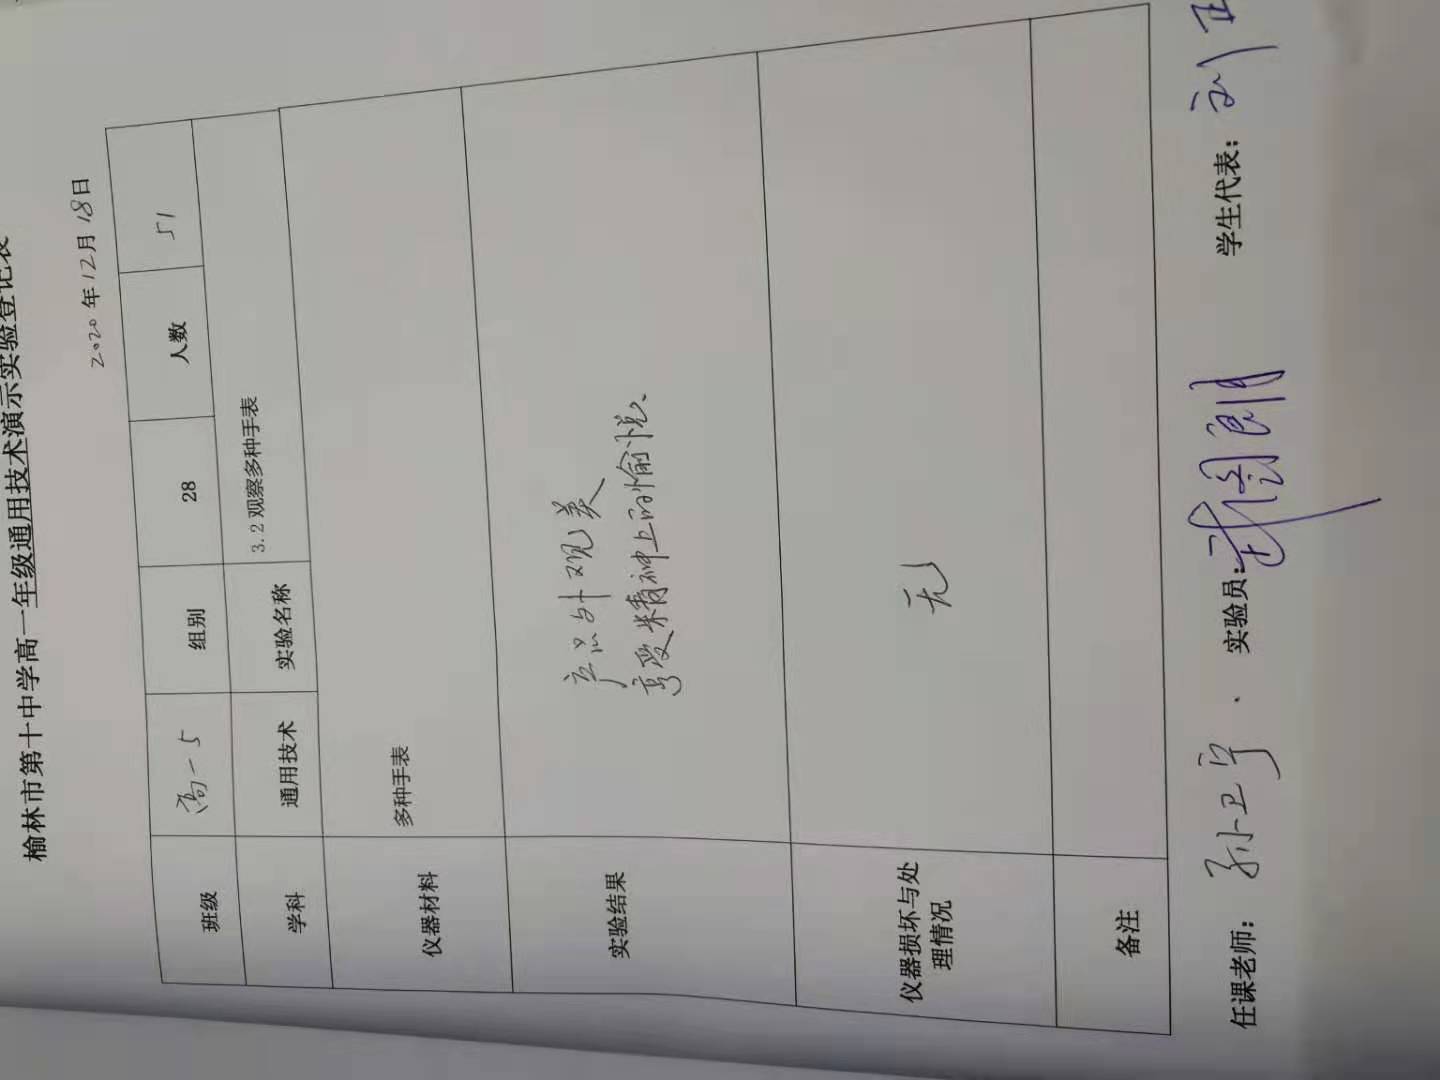 榆林市第十中学高一年级通用技术演示实验登记表
2020年12月18日
班级 高一5 组别 28 人数 51
学科 通用技术 实验名称 3.2观察多种手表
仪器材料 多种手表
实验结果 产品外观美
享受精神上的愉悦、
仪器损坏与处
理情况 无
备注
任课老师: 孙卫宁 实验员: 学生代表: 刘